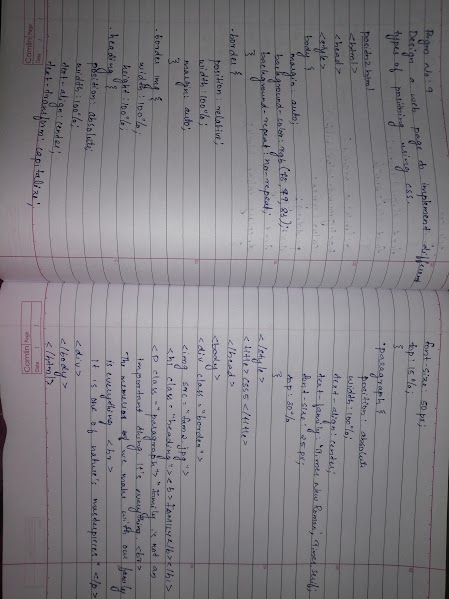 Pogm No: 9
Design a web page to implement different
types of positioning using css.
positn2.html
<html>
<head>
<style>
body {
margin: auto;
background-color: rgb(78, 79, 83);
background-repeat: no-repeat;
}
.border {
position: relative;
width: 100%;
margin: auto;
}
.border img {
width: 100%;
height: 100%;
.heading {
position: absolute;
width: 100%;
text-align: center;
text-transform: capitalize;
font-size: 50px;
top: 15%;
}
.paragraph {
position: absolute
width: 100%.
text-align: center;
text-family: 'Times new Roman', Times, serif;
font-size: 25px;
top: 30%
}
</style>
<title>CSS</title>
</head>
<body>
<div class="border">
<img src="fam2.jpg">
<h1 class="heading"><b>family</b></h1>
<p class="paragraph">"family is not an
important thing it's everything <br>
The memories of we make with our family
is everything <br>
it is one of nature's masterpieces" </p>
<div>
</body>
</html>